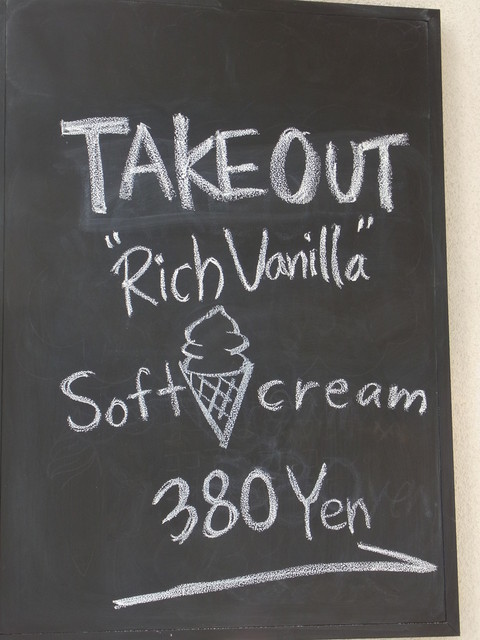 TAKEOUT
"Rich Vanilla"
Soft cream
380 Yen